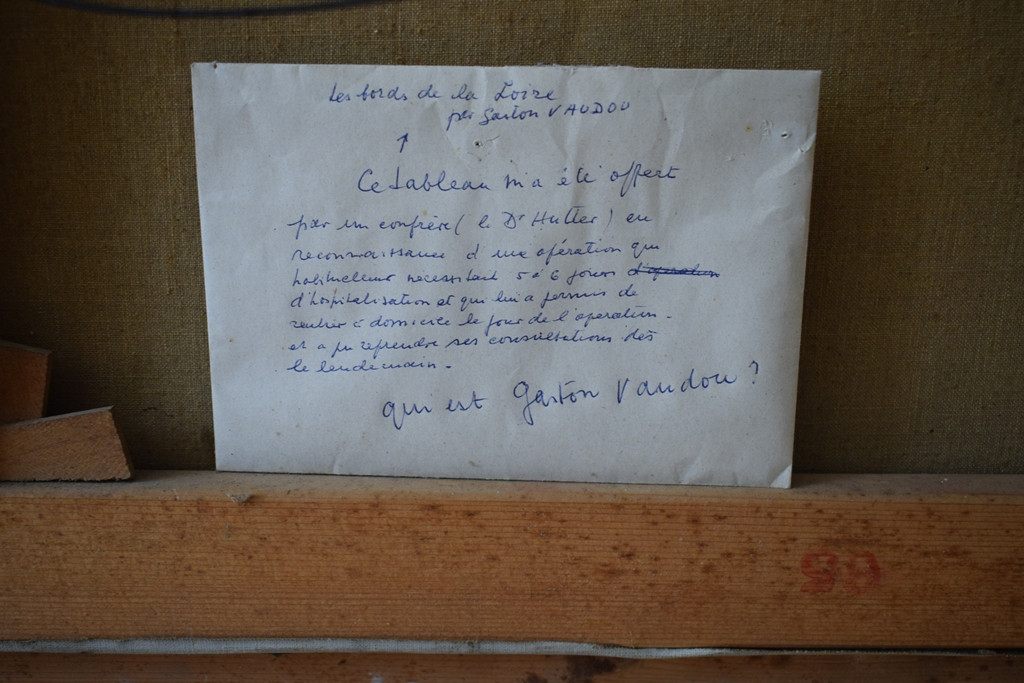 Les bords de la Loire
par Gaston VAUDOU
↑
Ce tableau m'a été offert
par un confrère ( le Dr Hutter ) en
reconnaissance d'une opération qui
habituellemt nécessitait 5 à 6 jours d'opération
d'hospitalisation et qui lui a permis de
rentrer à domicile le jour de l'opération -
et a pu reprendre ses consultations dès
le lendemain -
qui est Gaston Vaudou ?